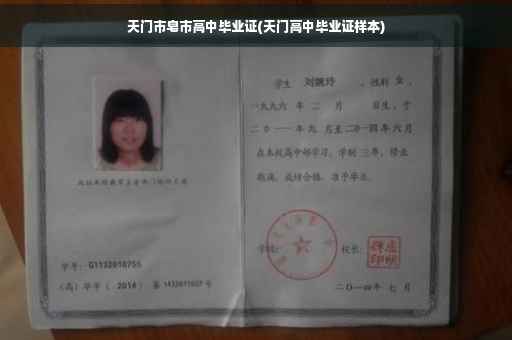 天门市皂市高中毕业证(天门高中毕业证样本)
学生 刘婉玲 , 性别 女 ,
一九九六 年 二 月 日生, 于
二〇一一 年 九 月至 二〇一四 年 六 月
在本校高中部学习, 学制 三 年, 修业
期满, 成绩合格, 准予毕业.
学校: 校长:
学号: G1132010755
(高) 毕字 ( 2014 ) 第 1432011027 号
二〇一四 年 七 月